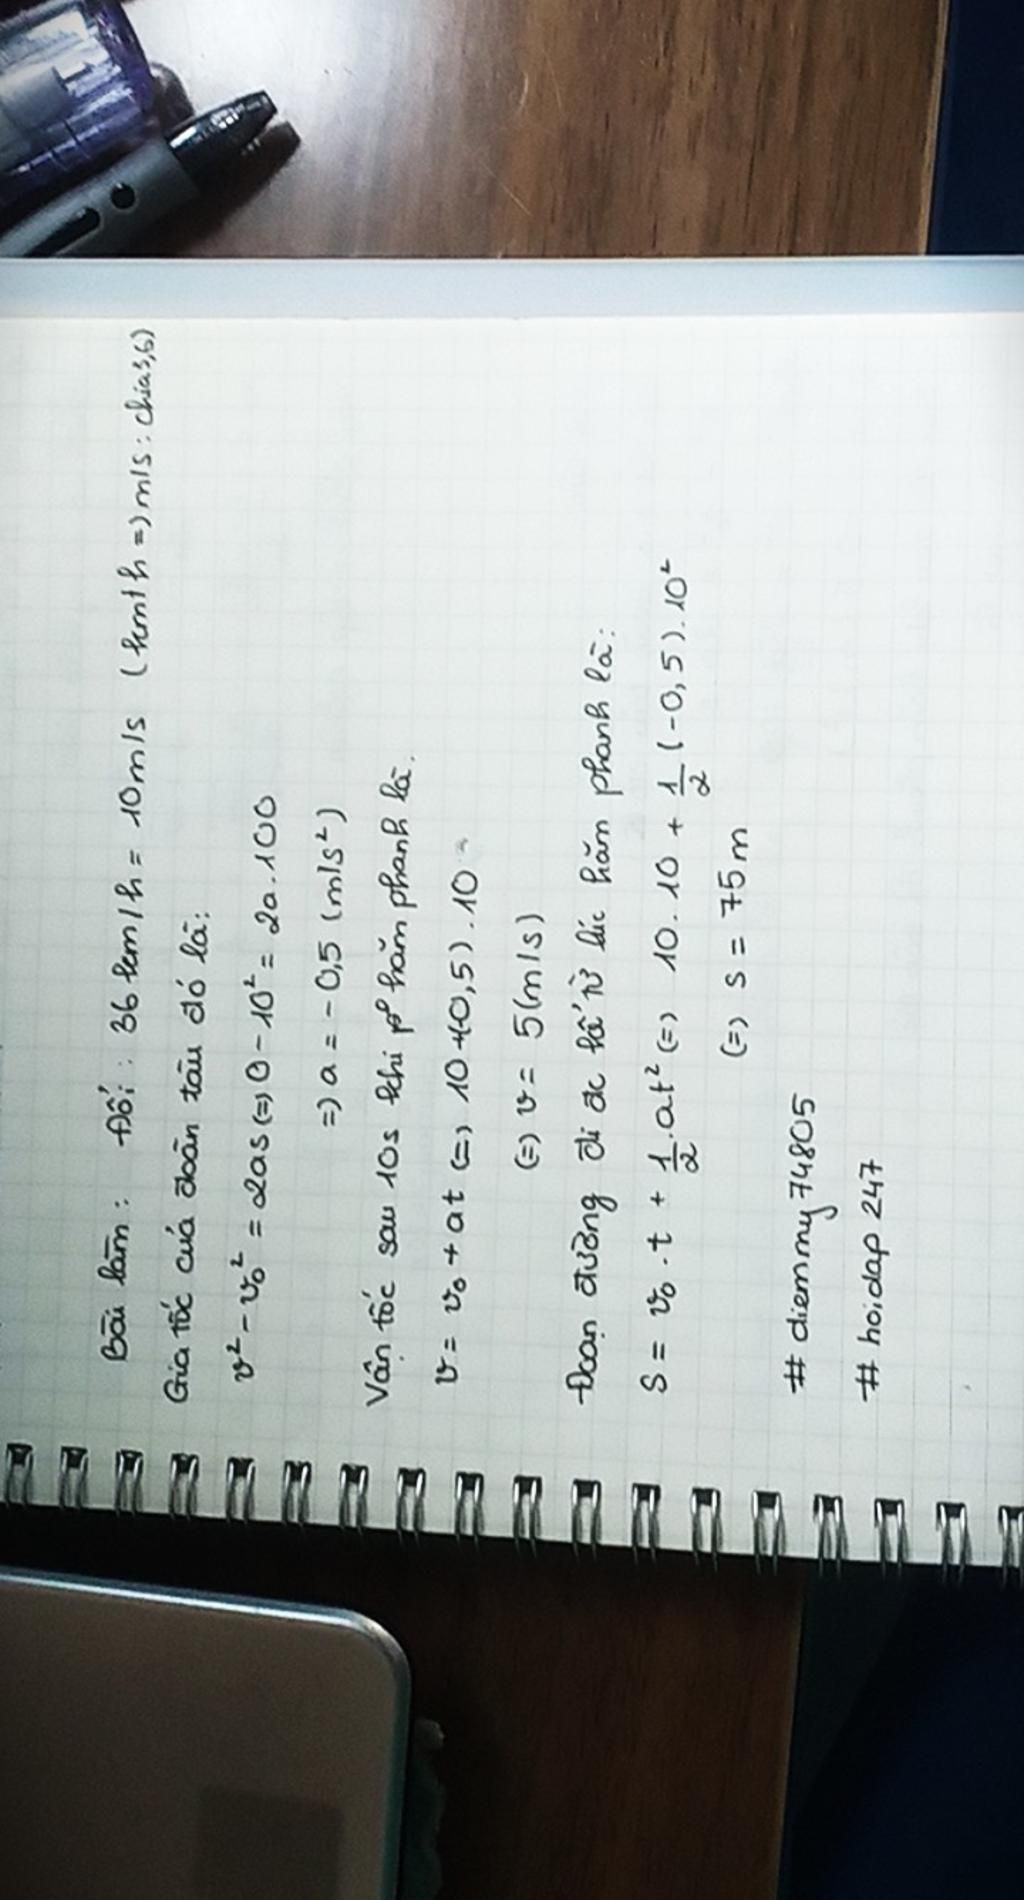 Bài làm: Đổi: 36 km/h = 10m/s (km/h => m/s: chia 3,6)
Gia tốc của đoàn tàu đó là:
v² - v₀² = 2as (=) 0 - 10² = 2a.100
=) a = -0,5 (m/s²)
Vận tốc sau 10s khi hãm phanh là.
v = v₀ + at (=) 10+(0,5).10
(=) v = 5(m/s)
Đoạn đường đi đc kể từ lúc hãm phanh là:
S = v₀.t + 1/2.at² (=) 10.10 + 1/2(-0,5).10²
(=) s = 75m
# diemmy74805
# hoidap247